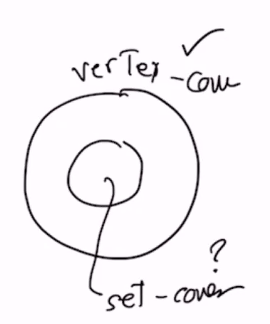 ✓
vertex-cov
?
set-cover